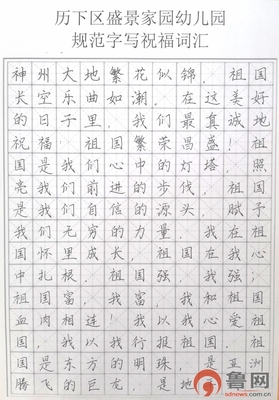 历下区盛景家园幼儿园
规范字写祝福词汇
神州大地繁花似锦，祖国
长空乐曲如潮。在这美好
的日子里，我们最真诚地
祝福：祖国繁荣昌盛！祖
国是我们心中的灯塔，照
亮我们前进的步伐，祖国
是我们自信的源头，赋予
我们无穷的力量。我在祖
国怀里成长，祖国在我心
中扎根。祖国强，我强；
祖国富，我富，我和祖国
血肉相连！我以我心爱祖
国，我以我行报祖国。祖
国是东方的明珠，是亚洲
腾飞的巨龙，是地
鲁网
sdnews.com.cn